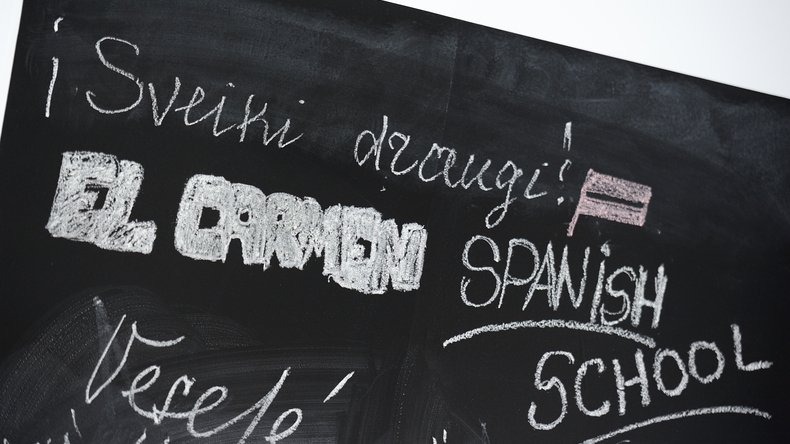 ¡Sveiki draugi!
EL CARMEN SPANiSH
SCHOOL
Veselé